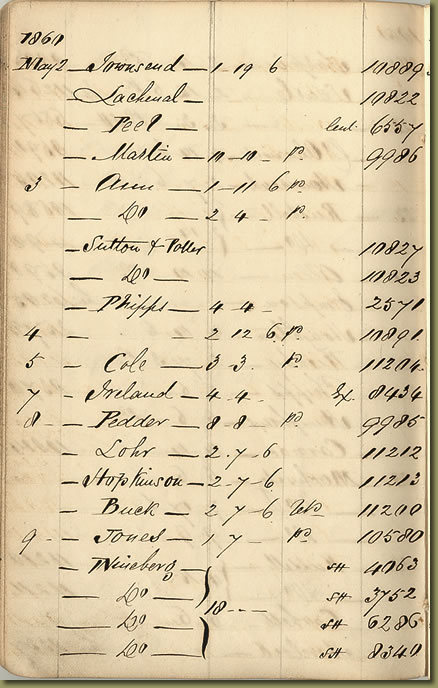 1860
May 2 – Townsend – 1 – 19 6 10889
– Lachenal – 10822
– Peel – lent 6557
– Martin – 10 – 10 – pd. 9986
3 – Ann – 1 – 11 6 pd 
– Do – 2 4 – pd.
– Sutton & Potter 10827
– Do – 10823
– Phipps – 4 4 – 2571
4 – – 2 12 6 pd 10891
5 – Cole – 3 3. pd. 11204
7 – Ireland – 4 4 – Ex. 8434
8 – Pedder – 8 – 8 – pd 9985
– Lohr – 2 . 7 – 6 11212
– Hopkinson – 2 – 7 – 6 11213
– Buck – 2 7 – 6 11200
9 – Jones – 1 7 – pd. 10580
– Wineberg – SH 4063
– Do – SH 3752
– Do – 18 – – – SH 6286
– Do – SH 8340